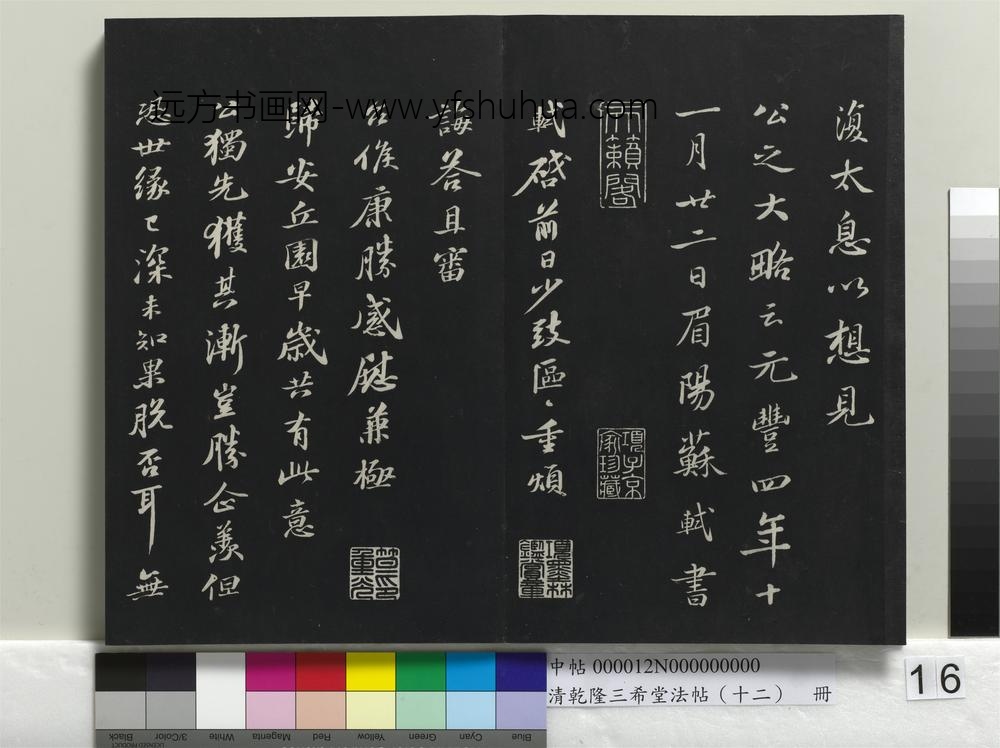 復太息以想見
公之大略云元豐四年十
一月廿二日眉陽蘇軾書
天籟閣
項子京
家珍藏
軾啓前日少致區〻重煩
項墨林
鑑賞章
誨答且審
台候康勝感慰兼極
歸安丘園早歲共有此意
公獨先獲其漸豈勝企羨但
恐世緣已深未知果脫否耳無
远方书画网-www.yfshuhua.com
中帖 000012N000000000
清乾隆三希堂法帖（十二） 冊
16
Blue
Cyan
Green
Yellow
Red
Magenta
White
3/Color
Black